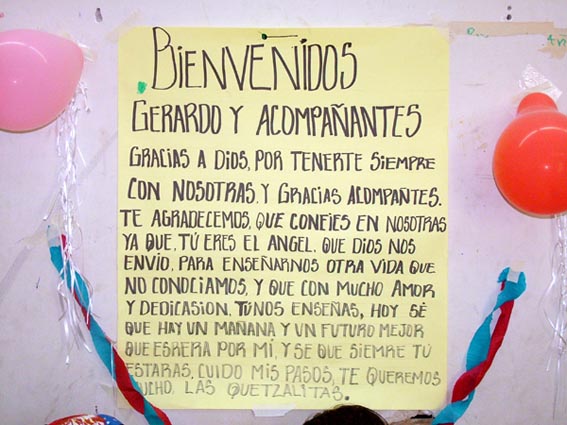 BIENVENIDOS
GERARDO Y ACOMPAÑANTES
GRACIAS A DIOS, POR TENERTE SIEMPRE
CON NOSOTRAS, Y GRACIAS ACOMPANTES.
TE AGRADECEMOS, QUE CONFIES EN NOSOTRAS
YA QUE, TÚ ERES EL ANGEL, QUE DIOS NOS
ENVIO, PARA ENSEÑARNOS OTRA VIDA QUE
NO CONOCIAMOS, Y QUE CON MUCHO AMOR
Y DEDICASION, TÚ NOS ENSEÑAS, HOY SÉ
QUE HAY UN MAÑANA Y UN FUTURO MEJOR
QUE ESPERA POR MÍ, Y SE QUE SIEMPRE TÚ
ESTARAS, CUIDO MIS PASOS, TE QUEREMOS
MUCHO, LAS QUETZALITAS.